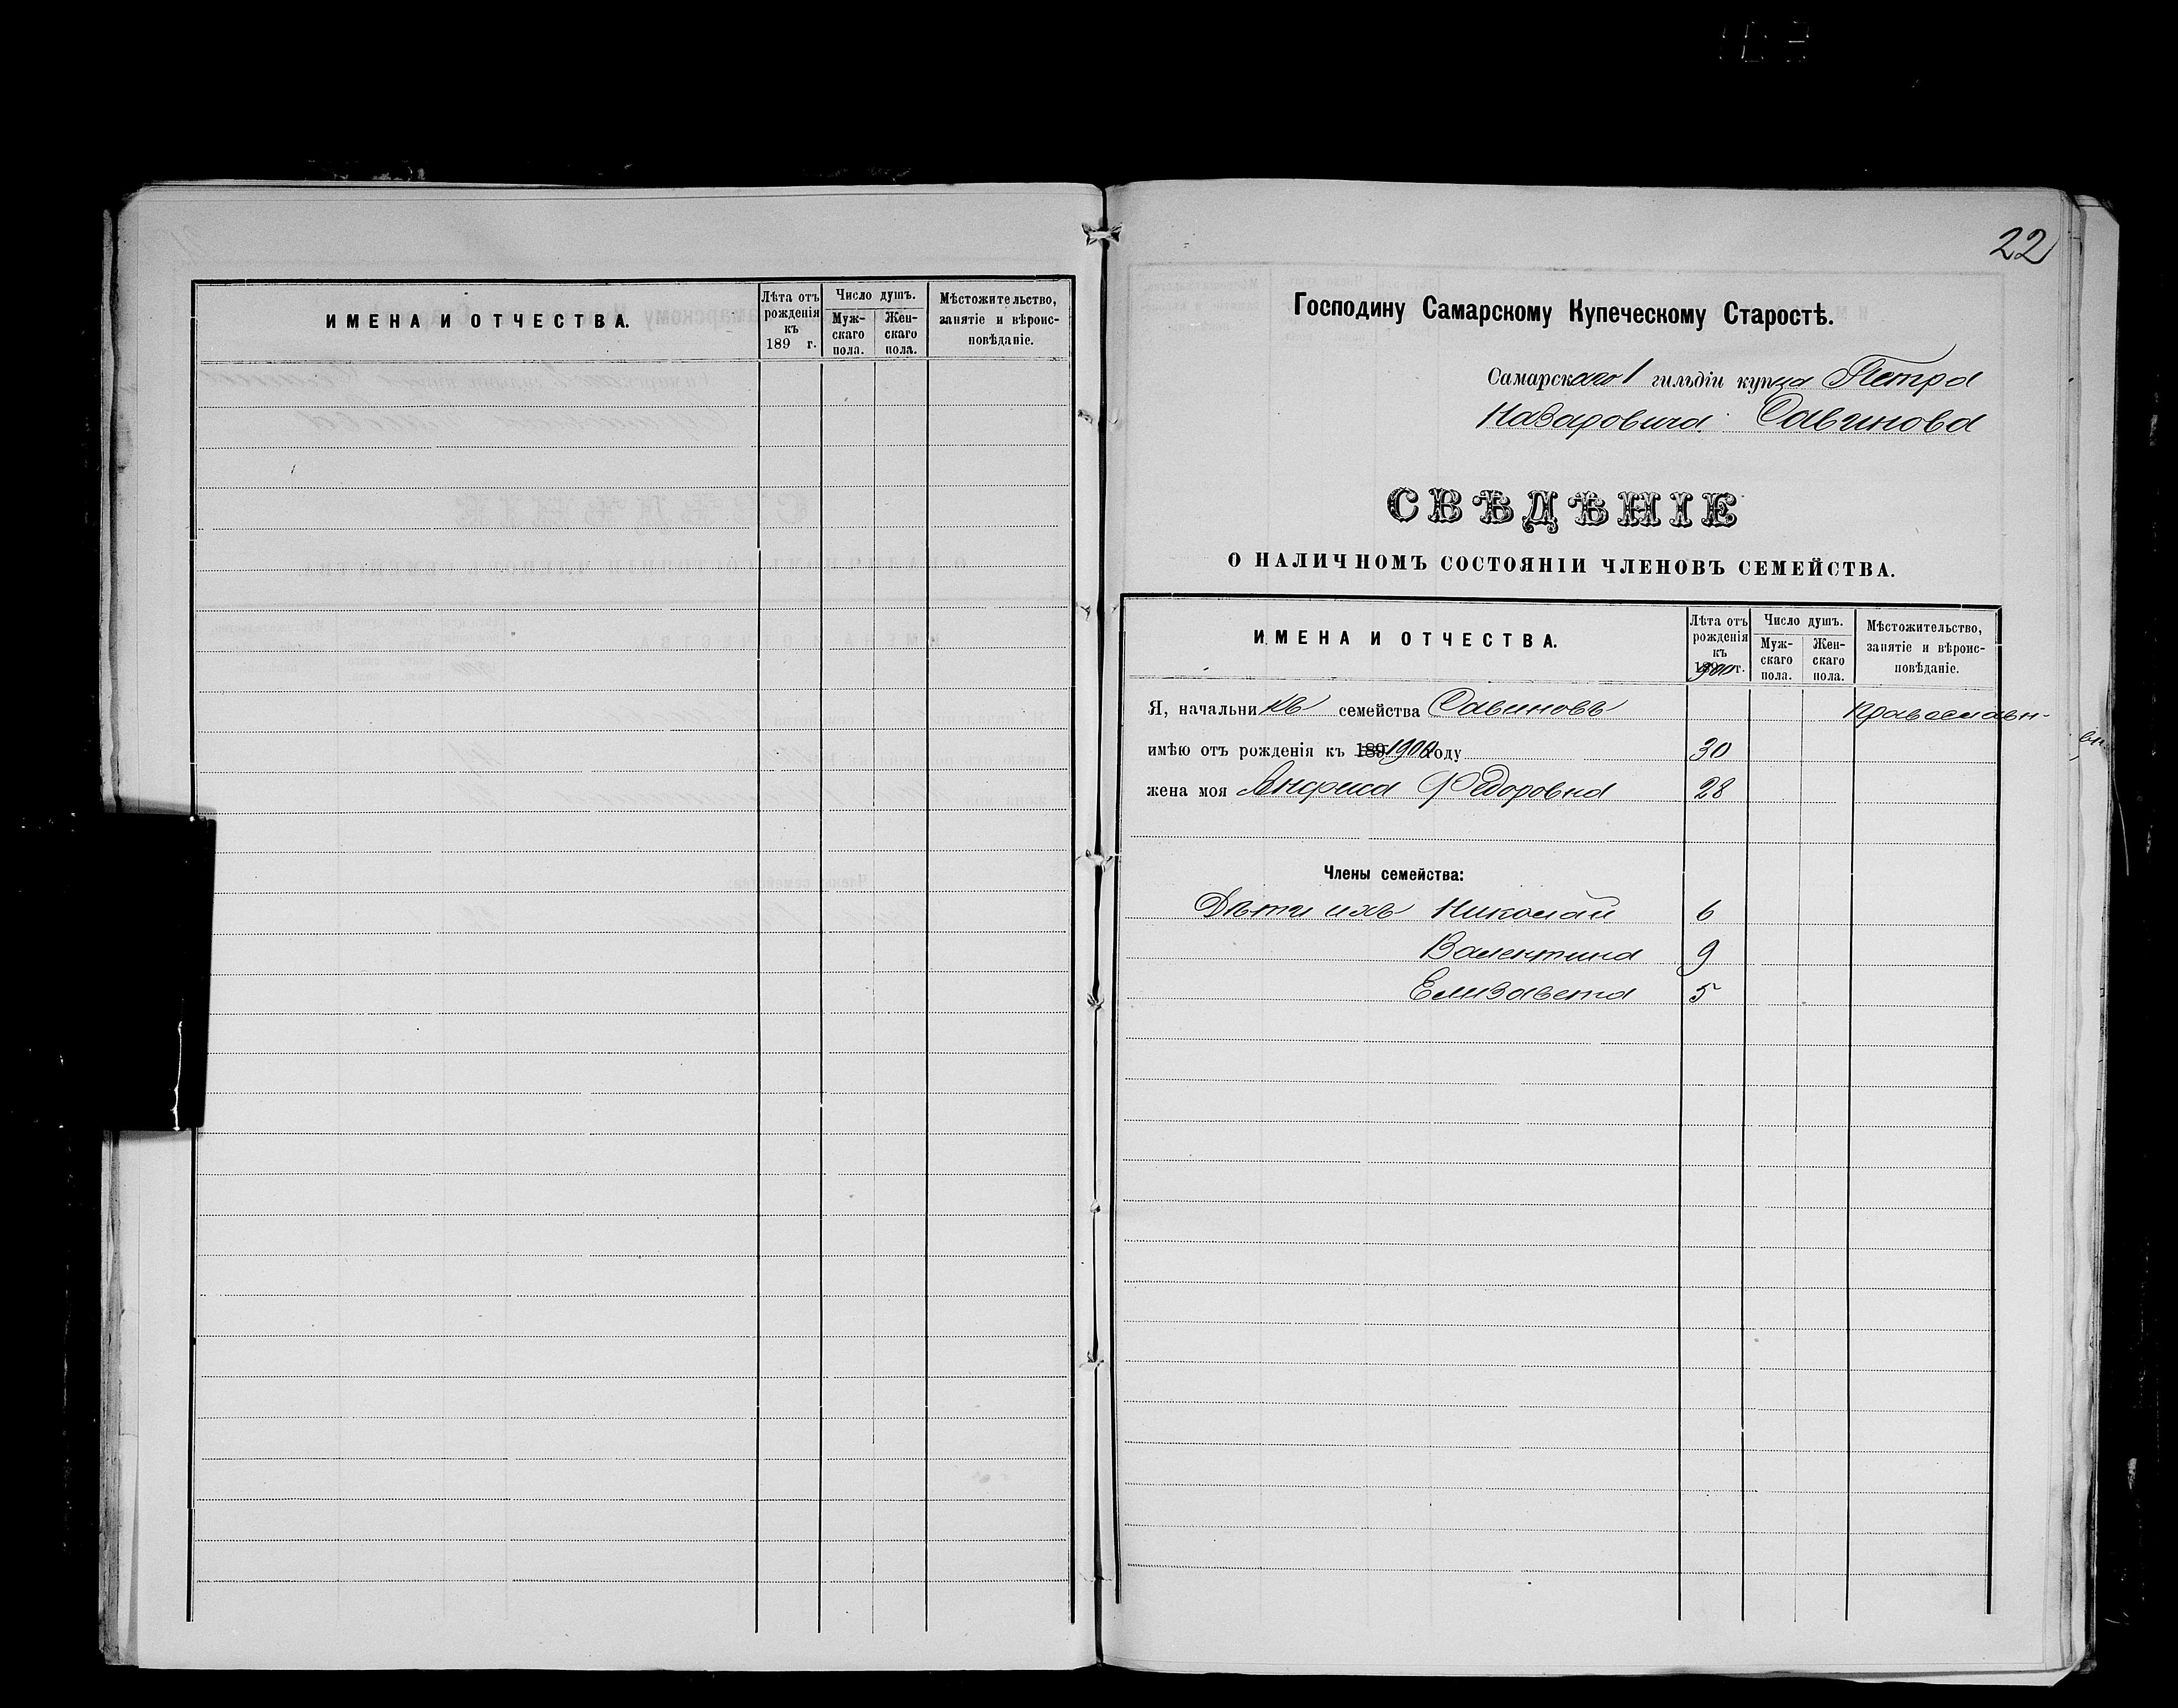 ИМЕНА И ОТЧЕСТВА.
Лѣта отъ рожденія къ 189 г.
Число душъ.
Мужскаго пола.
Женскаго пола.
Мѣстожительство, занятіе и вѣроисповѣданіе.
22
Господину Самарскому Купеческому Старостѣ.
Самарскаго 1 гильдіи купца Петра
Назаровича Савинова
СВѢДѢНІЕ
О НАЛИЧНОМЪ СОСТОЯНІИ ЧЛЕНОВЪ СЕМЕЙСТВА.
ИМЕНА И ОТЧЕСТВА.
Лѣта отъ рожденія къ 1900 г.
Число душъ.
Муж-
скаго
пола.
Жен-
скаго
пола.
Мѣстожительство,
занятіе и вѣроис-
повѣданіе.
Я, начальникъ семейства Савиновъ Православн-
имѣю отъ рожденія къ 189 1900 году 30
жена моя Анфиса Федоровна 28
Члены семейства:
Дѣти ихъ Николай 6
Валентина 9
Елизавета 5